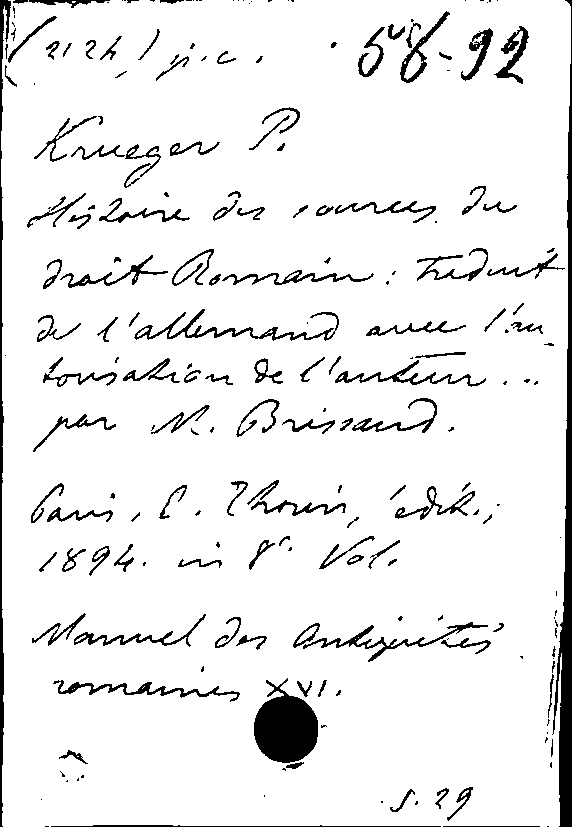 (2124) p.c. 58-92
Krueger P.
Histoire des sources du
droit Romain: traduit
de l'allemand avec l'au-
torisation de l'auteur...
par M. Brissaud.
Paris, E. Thorin, édit.;
1894. in 8° Vol.
Manuel des Antiquités
romaines XVI.
S. 29